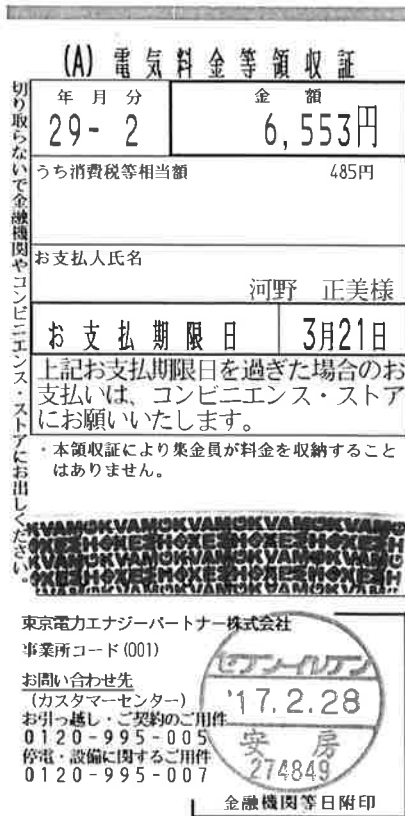 (A) 電気料金等領収証
切り取らないで金融機関やコンビニエンス・ストアにお出しください。
年月分
29- 2
金額
6,553円
うち消費税等相当額 485円
お支払人氏名
河野 正美様
お支払期限日 3月21日
上記お支払期限日を過ぎた場合のお
支払いは、コンビニエンス・ストア
にお願いいたします。
・本領収証により集金員が料金を収納すること
はありません。
東京電力エナジーパートナー株式会社
事業所コード(001)
お問い合わせ先
(カスタマーセンター)
お引っ越し・ご契約のご用件
0120-995-005
停電・設備に関するご用件
0120-995-007
セブン-イレブン
'17.2.28
安房
274849
金融機関等日附印